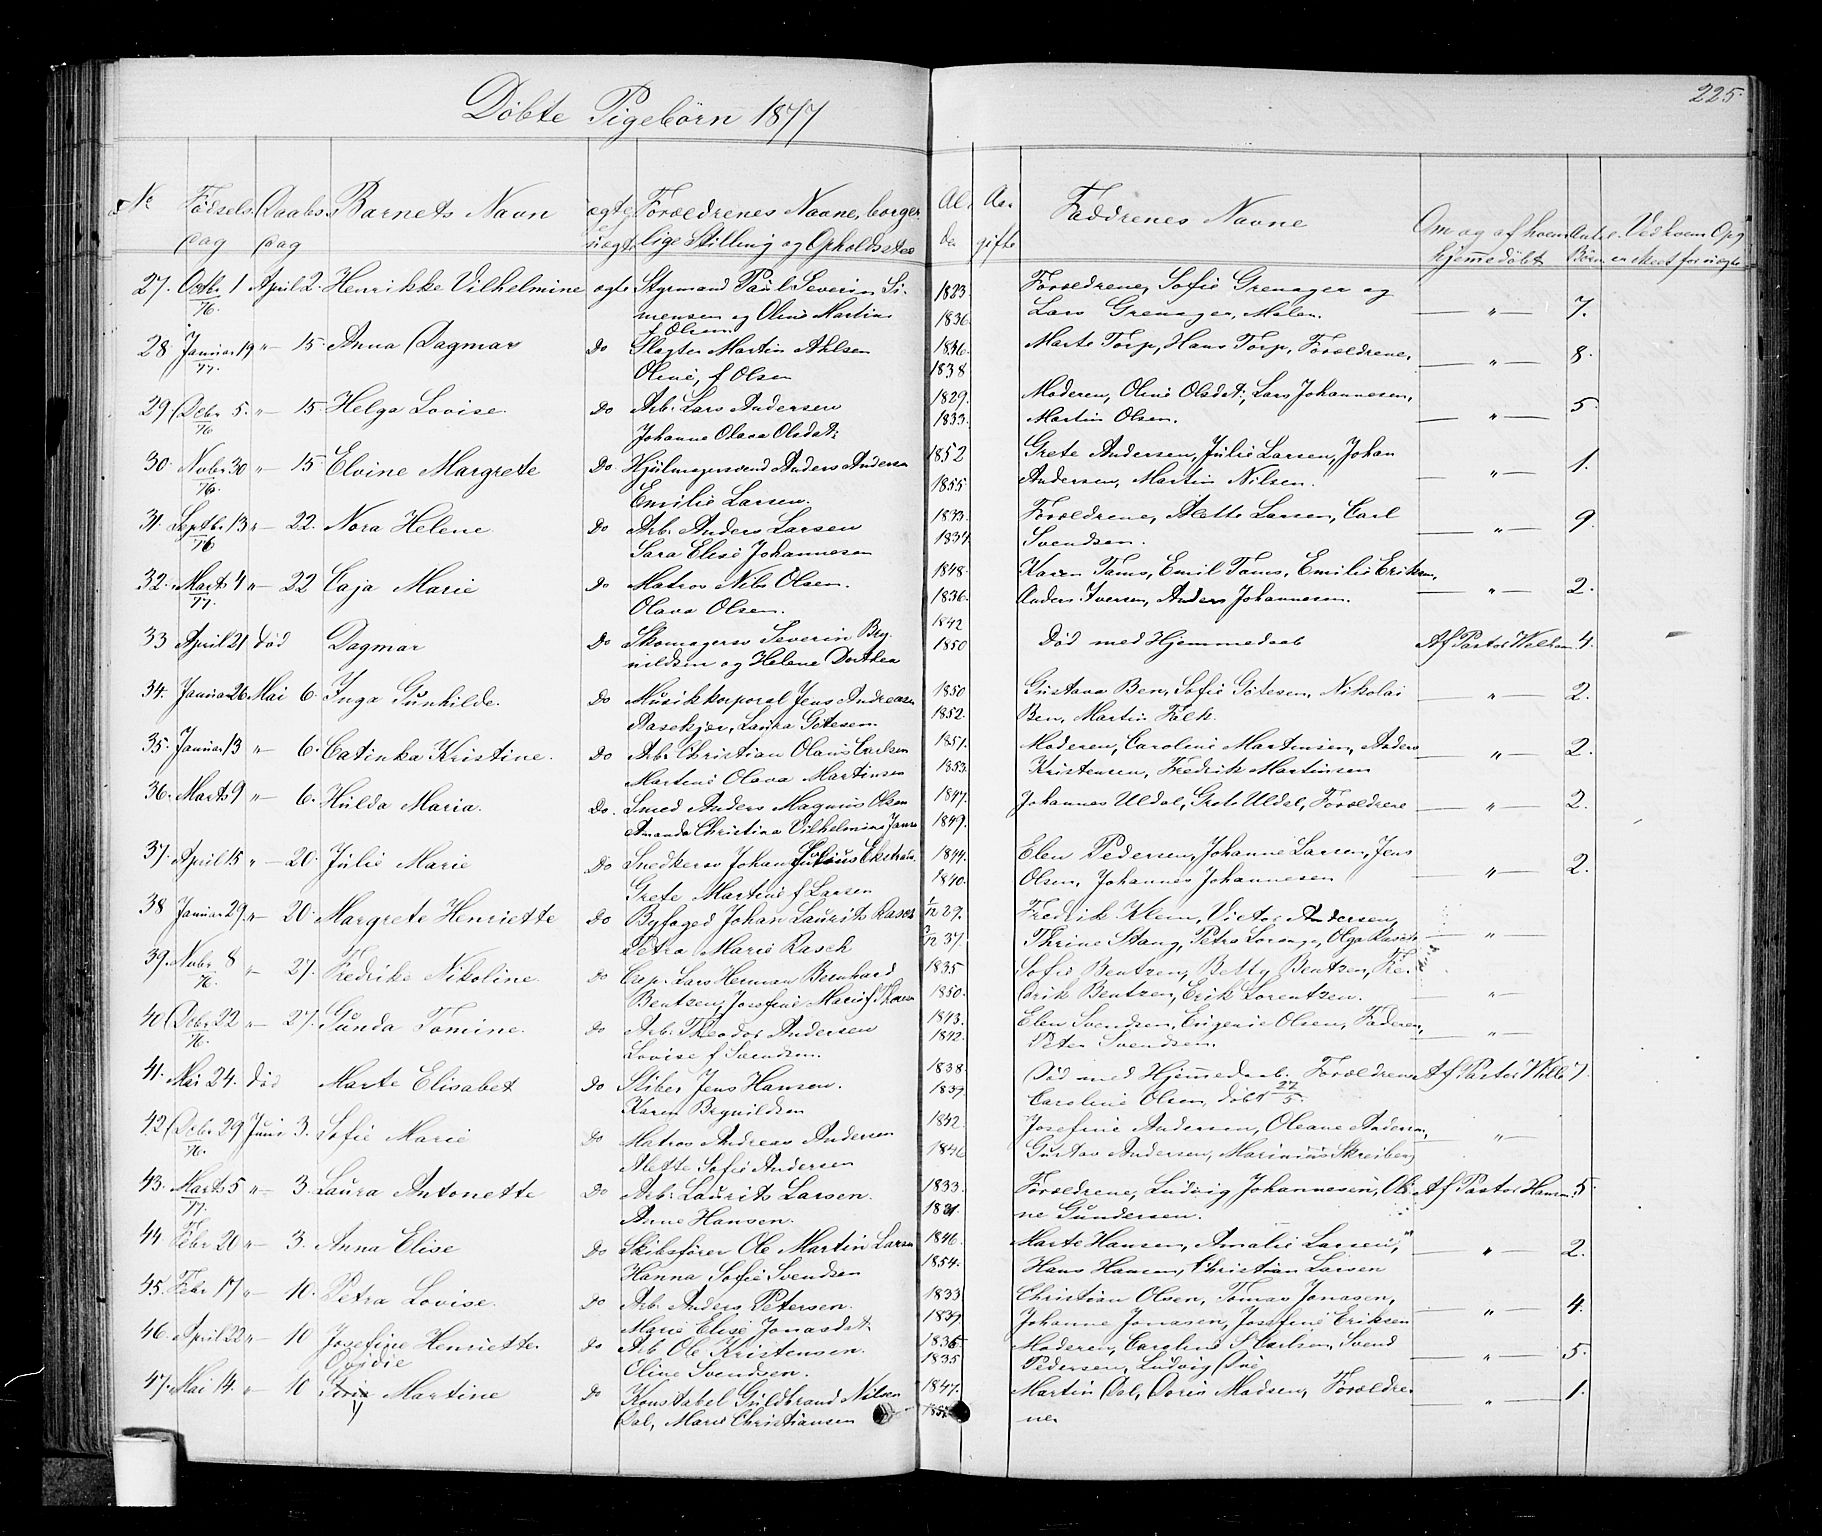 Døbte Pigebørn 1877
225.
No Fødsels Daabs Barnets Navn ægte Forældrenes Navne, borger Al Aar Faddrenes Navne Om og af hvem Antal Ved hvem Opg
dag dag uægte lige Stilling og Opholdssted der gifte hjemmedøbt Børn er skeet for uægte
27. Octbr 1 April 2. Henrikke Vilhelmine ægte Styrmand Paul Severin Si- 1823. Forældrene, Sofie Grenager og
76. mensen og Oline Martine 1836. Lars Grenager, Malen. — " — 7.
f Olsen
28. Januar 19 " — 15. Anna Dagmar Do Slagter Martin Ahlsen 1836. Marte Torp, Hans Torp, Forældrene.
77. Oline, f Olsen 1838 — " — 8
29 Debr 5. " — 15 Helga Lovise. Do Arb. Lars Andersen 1829. Moderen, Oline Olsdat:, Lars Johannesen,
76 Johanne Olava Olsdat: 1833. Martin Olsen. — " — 5
30. Novbr 30 " — 15 Elvine Margrete Do Hjulmagersvend Anders Andersen 1852 Grete Andersen, Julie Larsen, Johan
76. Emilie Larsen. 1855 Andersen, Martin Nilsen. " — 1.
31. Septbr 13 " — 22. Nora Helene Do Arb. Anders Larsen 1833. Forældrene, Alette Larsen, Carl
76 Sara Elise Johannesen 1834. Svendsen. — " — 9
32. Marts 4 " — 22 Caja Marie Do Matros Nils Olsen. 1848. Karen Tams, Emil Tams, Emilie Eriksen,
77. Olava Olsen. 1836. Anders Iversen, Anders Johannesen. — " — 2.
33 April 21 død Dagmar Do Skomagersv Severin Bry- 1842 Død med Hjemmedaab Af Pastor 4.
nildsen og Helene Dorthea 1850
34. Januar 26 Mai 6. Inga Gunhilde. Do Musikkorporal Jens Andreasen 1850 Gustava Ben, Sofie Götesen, Nikolai
Aasekjær, Laura Götesen 1852. Ben, Martin Falk. — " — 2.
35. Januar 13 " — 6. Catinka Kristine. Do Arb. Christian Olaus Carlsen 1851. Moderen, Caroline Martinsen, Anders
Martine Olava Martinsen 1853. Kristensen, Fredrik Martinsen — " — 2
36. Marts 9 " — 6. Hulda Maria. Do. Smed Anders Magnus Olsen 1847. Johannes Uldal, Grete Uldal, Forældrene — " — 2.
Amanda Christina Vilhelmine 1849.
37. April 15 " — 20. Julie Marie Do Snedkersv Johan 1844. Elen Pedersen, Johanne Larsen, Jens
Grete Martine f Larsen 1840. Olsen, Johannes Johannesen — " — 2.
38 Januar 29 " — 20. Margrete Henriette Do Byfoged Johan Laurits Rasch 29. Fredrik Klem, Victor Andersen,
Petra Marie Rasch 37. Thrine Stang, Petra Lorange, Olga Rasch — " —
39. Novbr 8 " — 27. Fredrike Nikoline. Do Cap. Lars Herman Bernhard 1835 Sofie Bentzen, Betty Bentzen, Fre-
76. Bentzen, Josefine Marie f 1850. drik Bentzen, Erik Lorentzen. — " —
40 Debr 22 " — 27. Gunda Tomine. Do Arb. Theodor Andersen 1843. Elen Svendsen, Eugenie Olsen, Faderen,
76. Lovise f Svendsen. 1842. Peter Svendsen. — " —
41. Mai 24. død Marte Elisabet Do Sliber Jens Hansen. 1838 Død med Hjemmedaab. Forældrene Af Pastor 1.
Karen Brynildsen 1839 Caroline Olsen, døbt 27/5.
42 Debr 29 Juni 3. Sofie Marie Do Matros Andreas Andersen 1842. Josefine Andersen, Oleane Andersen,
76. Alette Sofie Andersen 1846 Gustav Andersen, Marinius Skreiberg — " —
43. Marts 5 " — 3. Laura Antonette Do Arb. Laurits Larsen. 1833. Forældrene, Ludvig Johannesen, Oli- Af Pastor Hansen 5
77. Anne Hansen. 1831. ne Gundersen.
44 Febr 20 " — 3. Anna Elise Do Skibsfører Ole Martin Larsen 1846. Marte Hansen, Amalie Larsen,
Hanna Sofie Svendsen 1854. Hans Hansen, Christian Larsen — " — 2.
45. Febr 17 " — 10. Petra Lovise. Do Arb. Anders Petersen. 1833 Christian Olsen, Tomas Jonasen,
Marie Elise Jonasdat. 1839. Johanne Jonasen, Josefine Eriksen — " — 4.
46. April 22 " — 10 Josefine Henriette. Do Arb Ole Kristensen. 1836 Moderen, Caroline S Carlsen, Svend
Ovidie Oline Svendsen. 1835 Pedersen, Ludvig — " — 5.
47. Mai 14. " — 10 Martine Do Konstabel Guldbrand Nilsen 1847. Martin Dal, Dorin Madsen, Forældre-
Dal, Marie Christiansen ne. — " — 1.